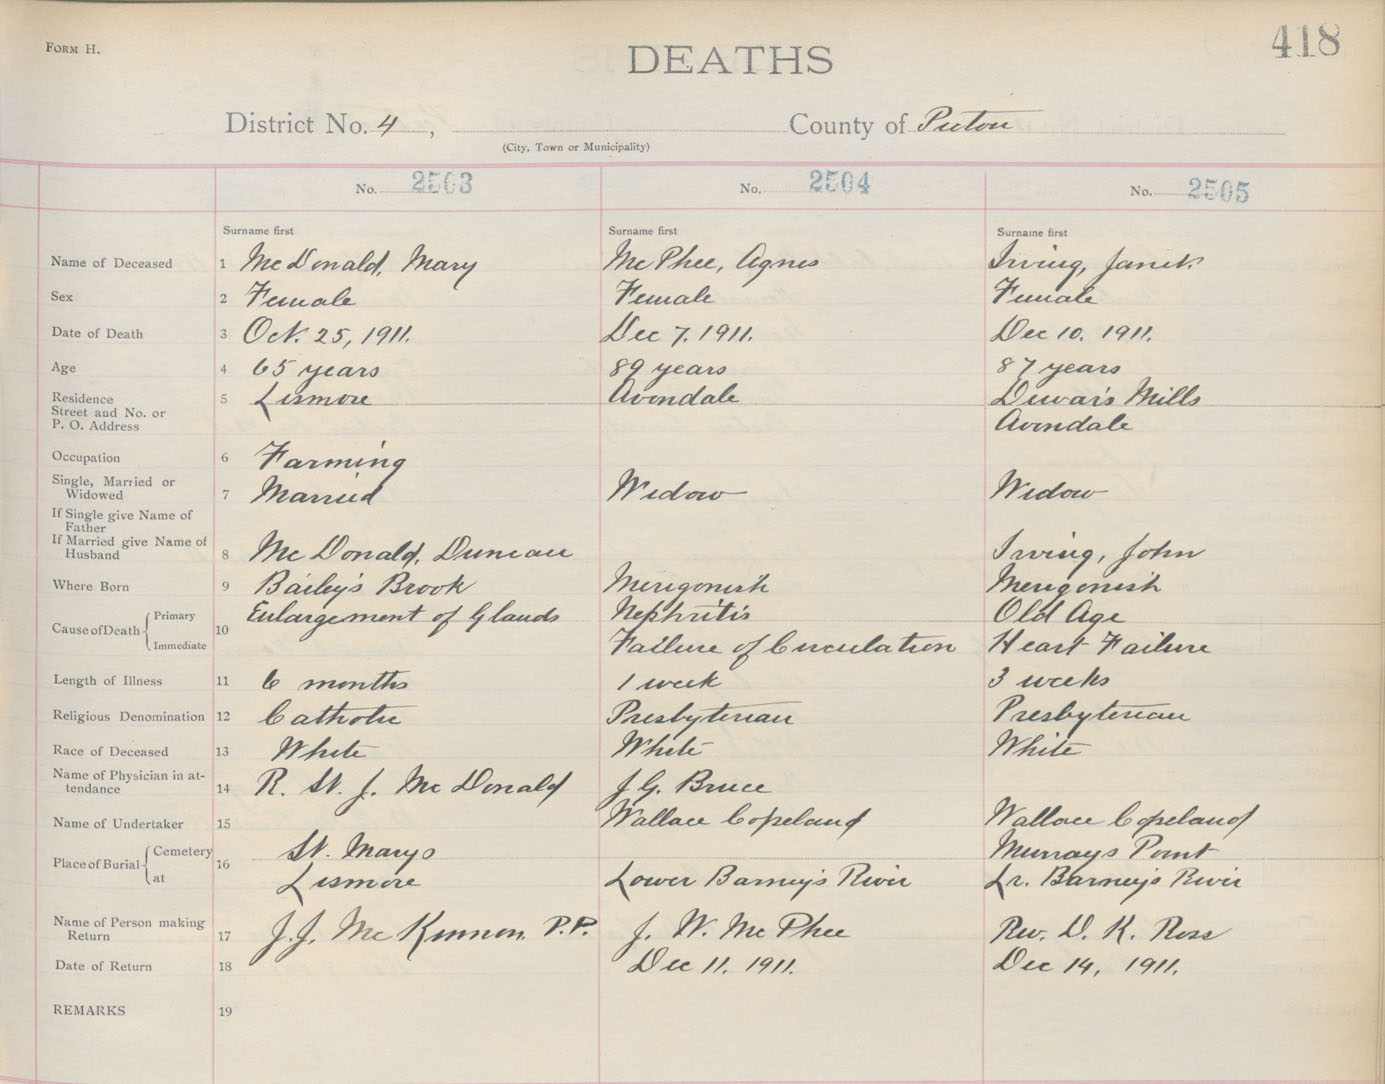 FORM H.
418
DEATHS
District No. 4, County of Pictou
(City, Town or Municipality)
No. 2503 No. 2504 No. 2505
Surname first Surname first Surname first
Name of Deceased 1 McDonald, Mary McPhee, Agnes Irving, Janet
Sex 2 Female Female Female
Date of Death 3 Oct. 25, 1911. Dec 7. 1911. Dec 10. 1911.
Age 4 65 years 89 years 87 years
Residence 5 Lismore Avondale Dewar's Mills
Street and No. or
P. O. Address Avondale
Occupation 6 Farming
Single, Married or
Widowed 7 Married Widow Widow
If Single give Name of
Father
If Married give Name of
Husband 8 McDonald, Duncan Irving, John
Where Born 9 Bailey's Brook Merigonish Merigonish
Cause of Death Primary 10 Enlargement of Glands Nephritis Old Age
Immediate Failure of Circulation Heart Failure
Length of Illness 11 6 months 1 week 3 weeks
Religious Denomination 12 Catholic Presbyterian Presbyterian
Race of Deceased 13 White White White
Name of Physician in at-
tendance 14 R. St. J. McDonald J.G. Bruce
Name of Undertaker 15 Wallace Copeland Wallace Copeland
Place of Burial Cemetery 16 St. Marys Murrays Point
at Lismore Lower Barney's River Lr. Barney's River
Name of Person making
Return 17 J.J. McKinnon. P.P. J. W. McPhee Rev. D. K. Ross
Date of Return 18 Dec 11. 1911. Dec 14, 1911.
REMARKS 19